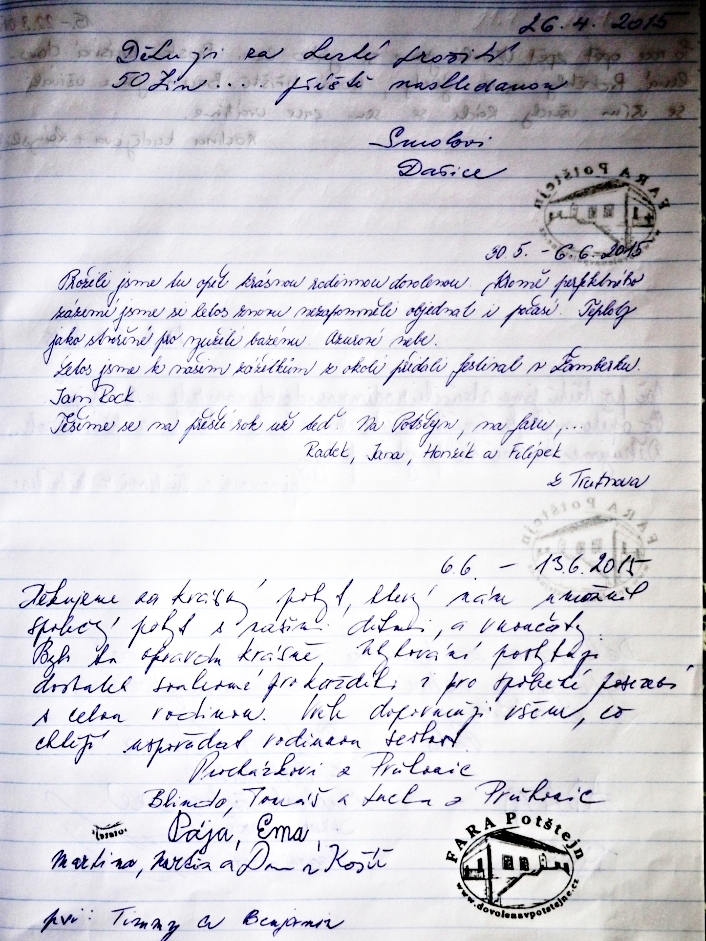 26.4.2015
Děkuji za hezké prožití
50tin .... příště nashledanou
Smolovi
Dašice
30.5. - 6.6.2015
Prožili jsme tu opět krásnou rodinnou dovolenou. Kromě perfektního
zázemí jsme si letos znovu nezapomněli objednat i počasí. Teploty
jako stvořené pro využití bazénu. Azurové nebe.
Letos jsme k našim zážitkům z okolí přidali festival v Žamberku.
Jam Rock
Těšíme se na příští rok už teď. Na Potštejn, na faru, ...
Radek, Jana, Honzík a Filípek
z Trutnova
6.6. - 13.6.2015
Děkujeme za krásný pobyt, který nám umožnil
společný pobyt s našimi dětmi, a vnoučaty.
Bylo to opravdu krásné, Ubytování poskytuje
dostatek soukromí pro každého i pro společné posezení
s celou rodinou. doporučuji všem, co
chtějí uspořádat rodinnou sešlost.
Procházkovi z Průhonic
Tomáš a z Průhonic
Pája, Ema,
Martina, a Dan z
psi: Timmy a Benjamin
FARA Potštejn
www.dovolenavpotstejne.cz